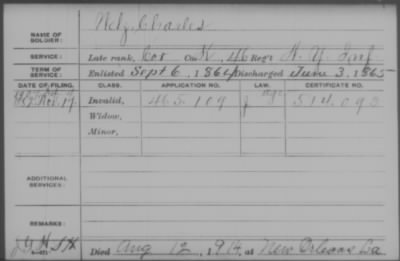 Charles
NAME OF SOLDIER:
SERVICE: Late rank, Cor Co. K, 46 Reg't N. Y. Inf
TERM OF SERVICE: Enlisted Sept 6, 1864 Discharged June 3, 1865
DATE OF FILING. CLASS. APPLICATION NO. LAW. CERTIFICATE NO.
Invalid, 465109
Widow,
Minor,
ADDITIONAL SERVICES:
REMARKS:
Died Aug 12, 1914, at New Orleans La